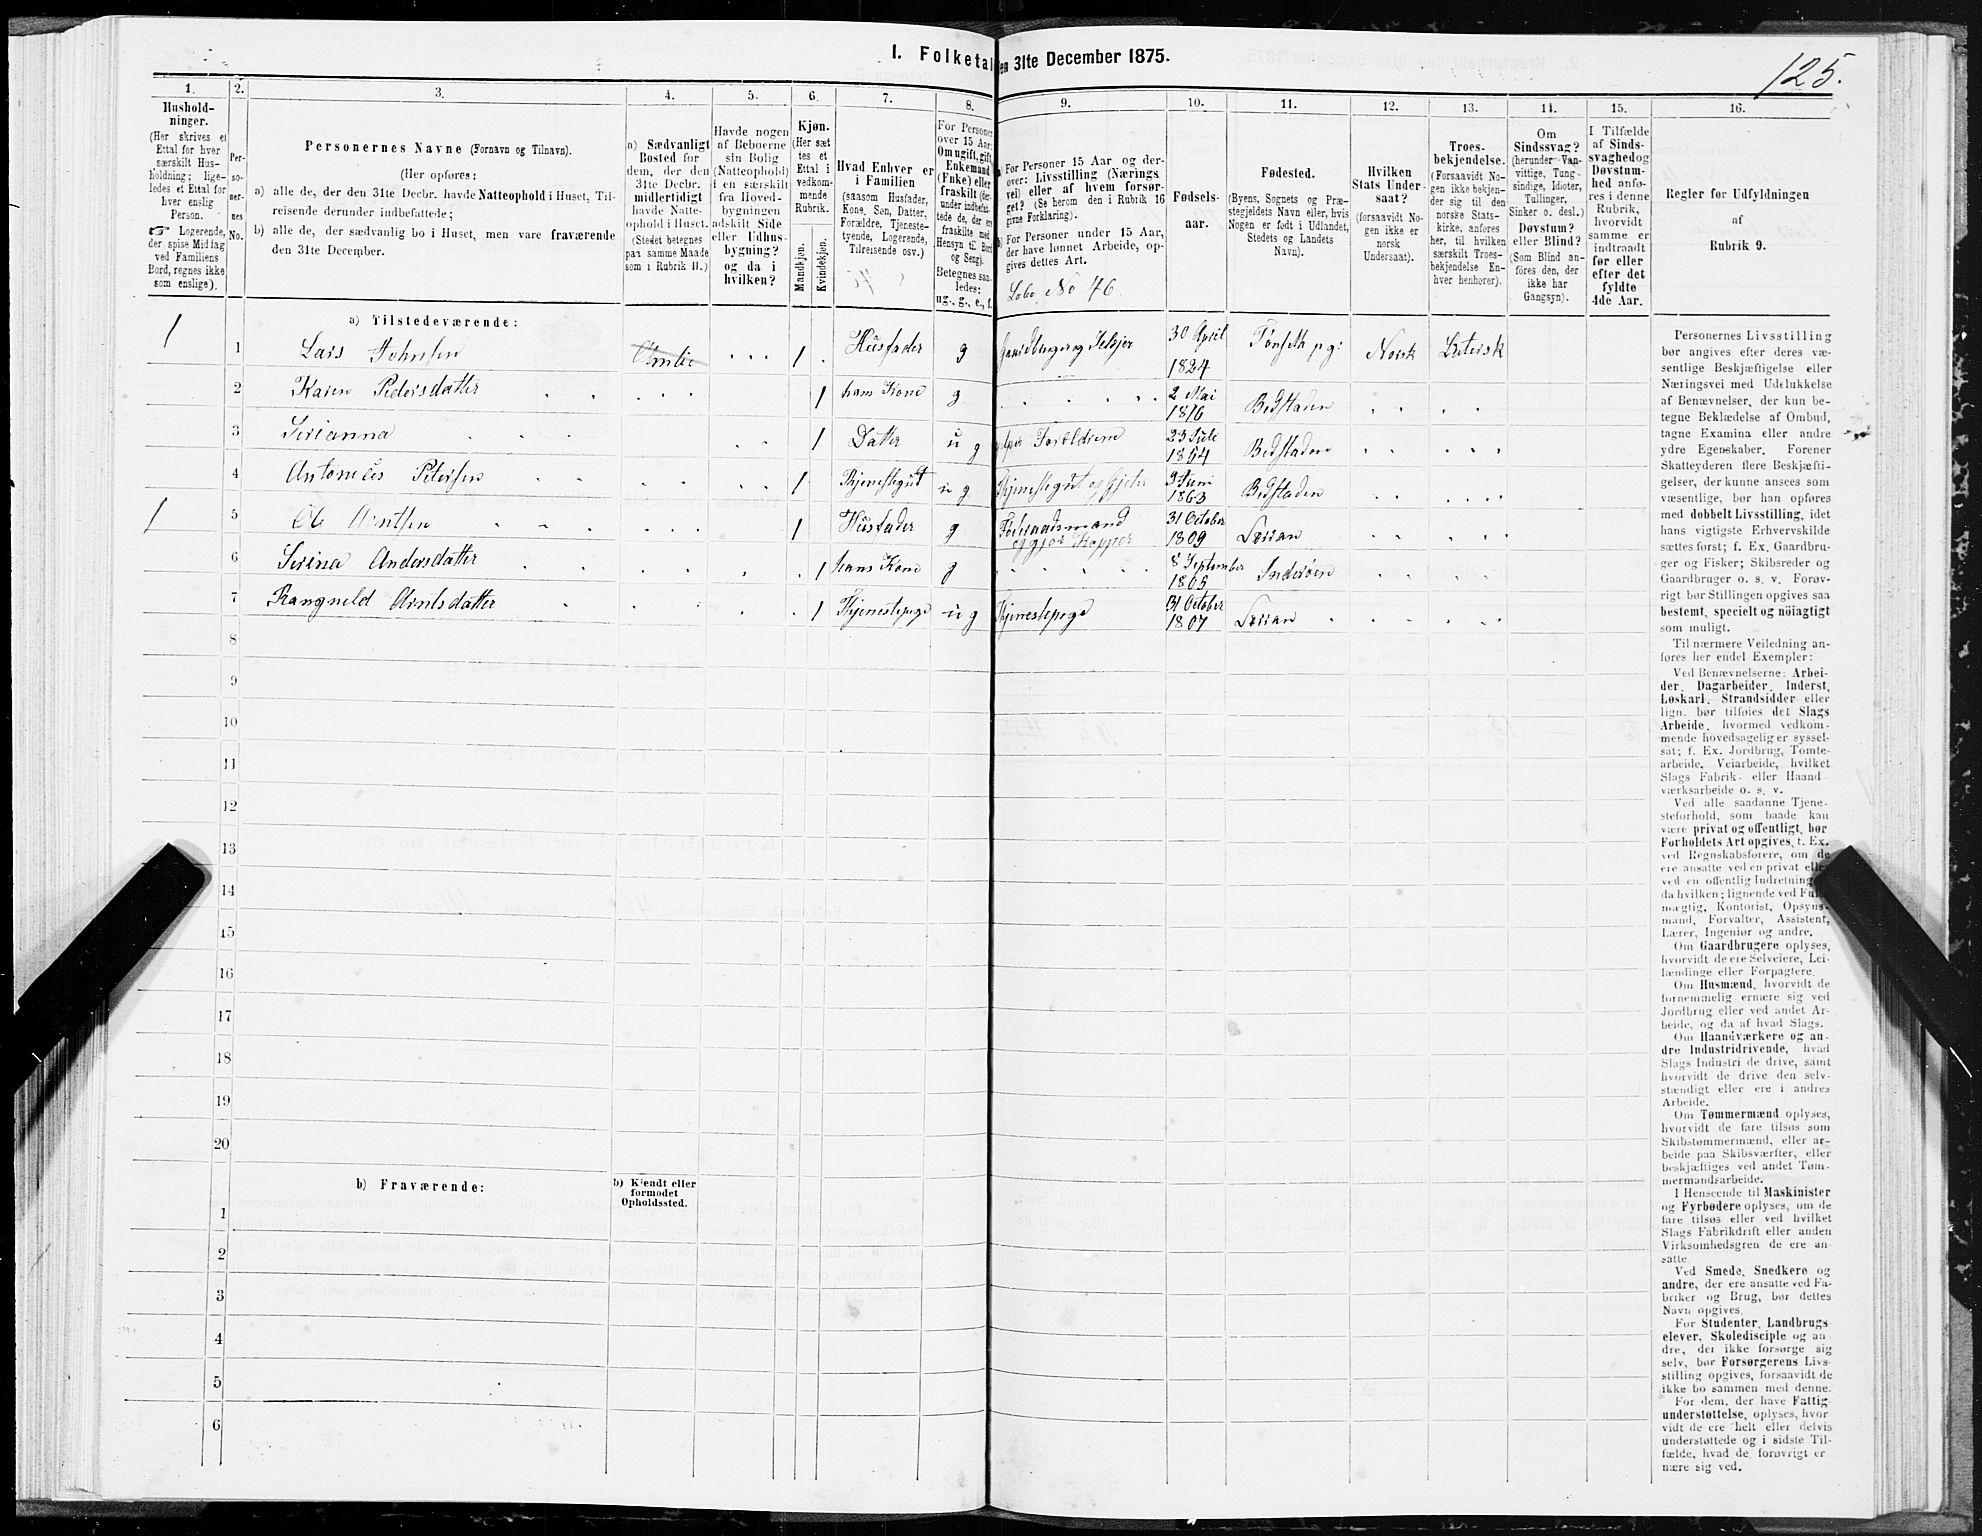 I. Folketal den 31te December 1875.
125.
1.
2.
3.
4.
5.
6.
7.
8.
9.
10.
11.
12.
13.
14.
15.
16.
Hushold-
ninger.
(Her skrives et
Ettal for hver
særskilt Hus-
holdning; lige-
ledes et Ettal for
hver enslig
Person.
☞ Logerende,
der spise Middag
ved Familiens
Bord, regnes ikke
som enslige).
Per-
so-
ner-
nes
No.
Personernes Navne (Fornavn og Tilnavn).
(Her opføres:
a) alle de, der den 31te Decbr. havde Natteophold i Huset, Til-
reisende derunder indbefattede;
b) alle de, der sædvanlig bo i Huset, men vare fraværende
den 31te December.
a) Sædvanligt
Bosted for
dem, der den
31te Decbr.
midlertidigt
havde Natte-
ophold i Huset.
(Stedet betegnes
paa samme Maade
som i Rubrik 11.)
Havde nogen
af Beboerne
sin Bolig
(Natteophold)
i en særskilt
fra Hoved-
bygningen
adskilt Side
eller Udhus-
bygning?
og da i
hvilken?
Kjøn.
(Her sæt
tes et
Ettal i
vedkom-
mende
Rubrik.
Mandkjøn.
Kvindekjøn.
Hvad Enhver er
i Familien
(saasom Husfader,
Kone, Søn, Datter,
Forældre, Tjeneste-
tyende, Logerende,
Tilreisende osv.)
For Personer
over 15 Aar:
Om ugift, gift,
Enkemand
(Enke) eller
fraskilt (der-
under indbefat-
tede de, der ere
fraskilte med
Hensyn til Bord
og Seng).
Betegnes saa-
ledes:
ug., g., e., f.
a) For Personer 15 Aar og der-
over: Livsstilling (Nærings
vei) eller af hvem forsør-
get? (Se herom den i Rubrik 16
givne Forklaring).
b) For Personer under 15 Aar,
der have lønnet Arbeide, op-
gives dettes Art.
Løbe No 46.
Fødsels-
aar.
Fødested.
(Byens, Sognets og Præ-
stegjeldets Navn eller, hvis
Nogen er født i Udlandet,
Stedets og Landets
Navn).
Hvilken
Stats Under-
saat?
(forsaavidt No-
gen ikke er
norsk
Undersaat).
Troes-
bekjendelse.
(Forsaavidt No-
gen ikke bekjen-
der sig til den
norske Stats-
kirke, anføres
her, til hvilken
særskilt Troes-
bekjendelse En-
hver henhører).
Om
Sindssvag?
(herunder Van-
vittige, Tung-
sindige, Idioter,
Tullinger,
Sinker o. desl.)
Døvstum?
eller Blind?
(Som Blind an-
føres den, der
ikke har
Gangsyn).
I Tilfælde
af Sinds-
svaghed og
Døvstum-
hed anfø-
res i denne
Rubrik,
hvorvidt
samme er
indtraadt
før eller
efter det
fyldte
4de Aar.
Regler for Udfyldningen
af
Rubrik 9.
a) Tilstedeværende:
1 1 Lars Johnsen 1 Husfader g Gaardbruger og Selejer 30 April 1824 Tønseth pg: Norsk Lutersk
2 Karen Pedersdatter 1 hans Kone g " " " " 2 Mai 1816 Bedstaden " " " "
3 Serianna 1 Datter u g Forældrene 23 Jule 1854 Bedstaden " " " "
4 Antonius Petersen 1 Thjenestegut u g Thjenestegut og Gjeter 9 Juni 1863 Bedstaden " " " "
1 5 Ole Arntsen 1 Husfader g Føderaadsmand og gjør Kopper 31 October 1809 " " " "
6 Serina Andersdatter 1 hans Kone g " " " " 8 September 1805 Inderøen " " " "
7 Rangneld Arntsdatter 1 Thjenestepege u g Thjenestepege 31 October 1807 " " " "
8
9
10
11
12
13
14
15
16
17
18
19
20
b) Fraværende:
b) Kjendt eller
formodet
Opholdssted.
1
2
3
4
5
6
Personernes Livsstilling
bør angives efter deres væ-
sentlige Beskjæftigelse eller
Næringsvei med Udelukkelse
af Benævnelser, der kun be-
tegne Beklædelse af Ombud,
tagne Examina eller andre
ydre Egenskaber. Forener
Skatteyderen flere Beskjæfti-
gelser, der kunne ansees som
væsentlige, bør han opføres
med dobbelt Livsstilling, idet
hans vigtigste Erhvervskilde
sættes først; f. Ex. Gaardbru-
ger og Fisker; Skibsreder og
Gaardbruger o. s. v. Forøv-
rigt bør Stillingen opgives saa
bestemt, specielt og nöiagtigt
som muligt.
Til nærmere Veiledning an-
føres her endel Exempler:
Ved Benævnelserne: Arbei-
der, Dagarbeider, Inderst,
Løskarl, Strandsidder eller
lign. bør tilføies det Slags
Arbeide, hvormed vedkom-
mende hovedsagelig er syssel-
sat; f. Ex. Jordbrug, Tomte-
arbeide, Veiarbeide, hvilket
Slags Fabrik- eller Haand-
værksarbeide o. s. v.
Ved alle saadanne Tjene-
steforhold, som baade kan
være privat og offentligt, bør
Forholdets Art opgives, f. Ex.
ved Regnskabsførere, om de
ere ansatte ved en privat eller
ved en offentlig Indretning og
da hvilken; lignende ved Fuld-
mægtig, Kontorist, Opsyns-
mand, Forvalter, Assistent,
Lærer, Ingeniør og andre.
Om Gaardbrugere oplyses,
hvorvidt de ere Selveiere, Lei-
lændinge eller Forpagtere.
Om Husmænd, hvorvidt de
fornemmelig ernære sig ved
Jordbrug eller ved andet Ar-
beide, og da af hvad Slags.
Om Haandværkere og an-
dre Industridrivende, hvad
Slags Industri de drive, samt
hvorvidt de drive den selv-
stændigt eller ere i andres
Arbeide.
Om Tømmermænd oplyses,
hvorvidt de fare tilsøs som
Skibstømmermænd, eller ar-
beide paa Skibsværfter, eller
beskjæftiges ved andet Tøm-
mermandsarbeide.
I Henseende til Maskinister
og Fyrbødere oplyses, om de
fare tilsøs eller ved hvilket
Slags Fabrikdrift eller anden
Virksomhedsgren de ere an-
satte.
Ved Smede, Snedkere og
andre, der ere ansatte ved Fa-
briker og Brug, bør dettes
Navn opgives.
For Studenter, Landbrugs-
elever, Skoledisciple og an-
dre, der ikke forsørge sig
selv, bør Forsørgerens Livs-
stilling opgives, forsaavidt de
ikke bo sammen med denne.
For dem, der have Fattig-
understøttelse, oplyses, hvor-
vidt de ere helt eller delvis
understøttede og i sidste Til-
fælde, hvad de forøvrigt er-
nære sig ved.